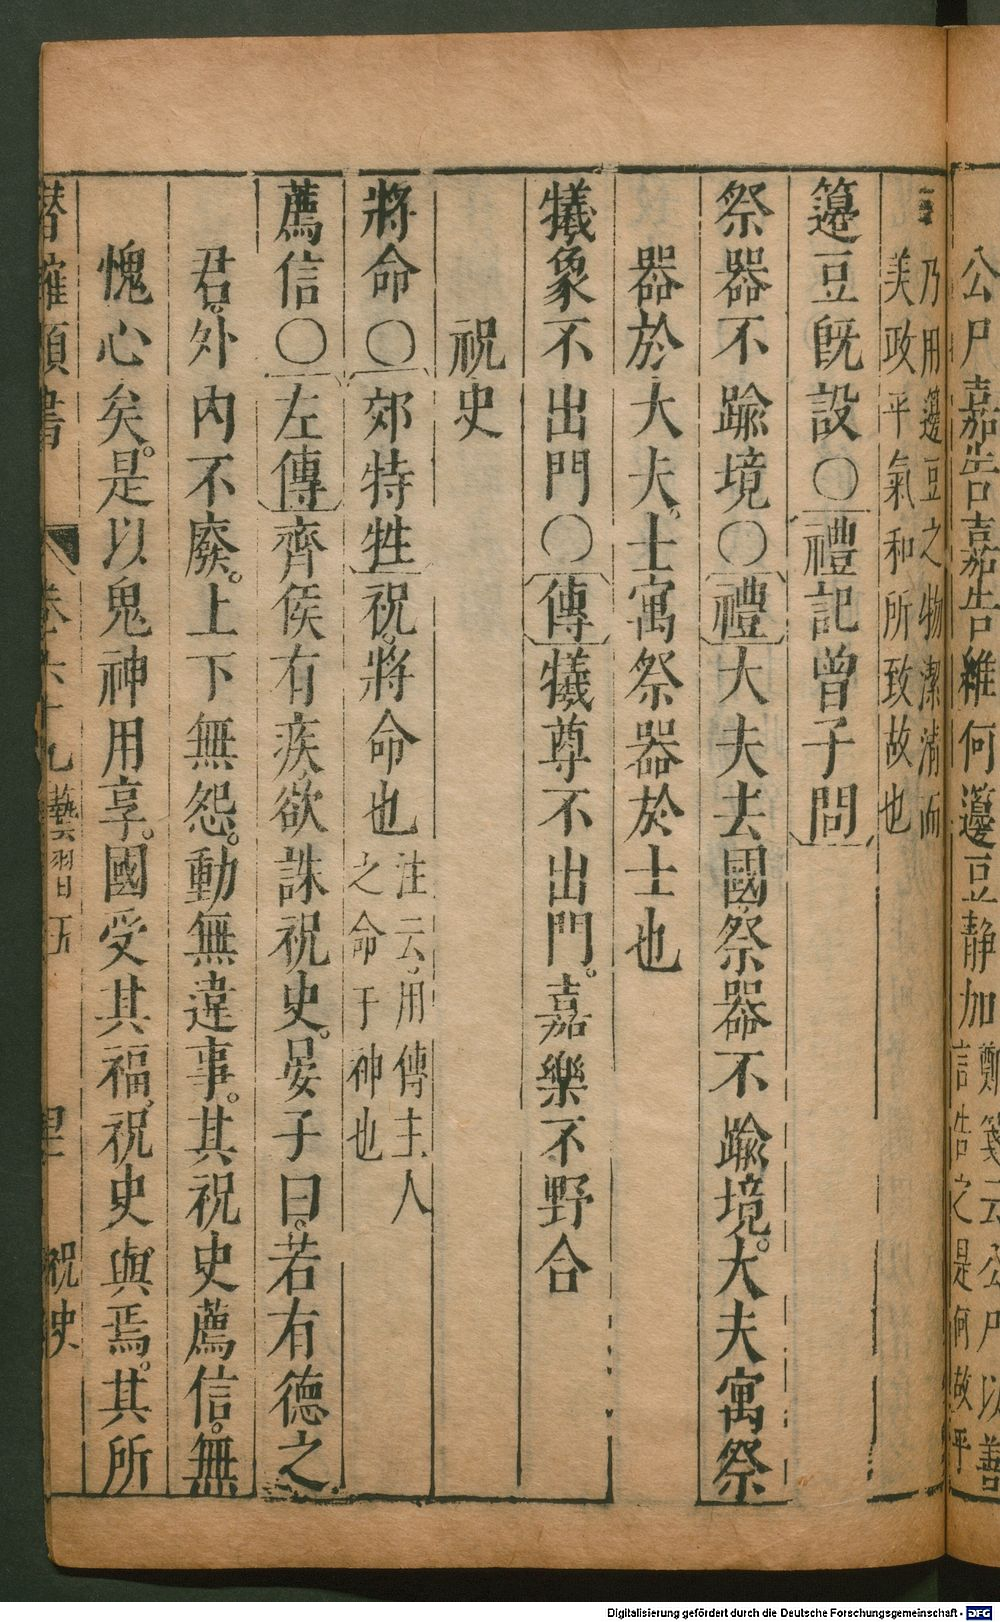 公尸嘉告嘉告維何籩豆静加鄭箋云公尸以善言告之是何故乎
乃用籩豆之物潔清而美政平氣和所致故也
籩豆旣設○禮記曾子問
祭器不踰境○禮大夫去國祭器不踰境。大夫寓祭
器於大夫士寓祭器於士也
犧象不出門○傳犧尊不出門。嘉樂不野合
祝史
將命○郊特牲祝將命也注云用傳主人之命于神也
薦信○左傳齊侯有疾欲誅祝史。晏子曰。若有德之
君。外內不廢。上下無怨。動無違事。其祝史薦信。無
愧心矣。是以鬼神用享。國受其福。祝史與焉。其所
潛確類書 卷六十九 藝習五 祝史
Digitalisierung gefördert durch die Deutsche Forschungsgemeinschaft - DFG